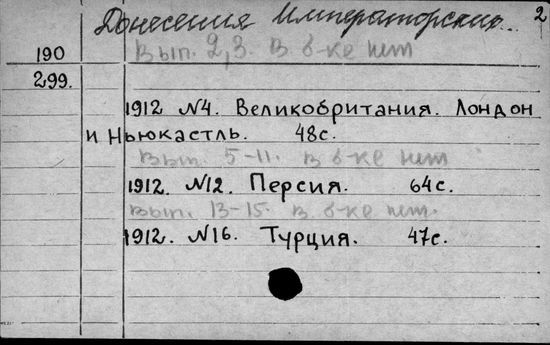 Донесения Императорских... 2
190 Вып. 2, 3. В б-ке нет
299.
1912 №4. Великобритания. Лондон
и Ньюкастль. 48с.
Вып. 5-11. В б-ке нет
1912. №12. Персия. 64с.
Вып. 13-15. В б-ке нет.
1912. №16. Турция. 47с.